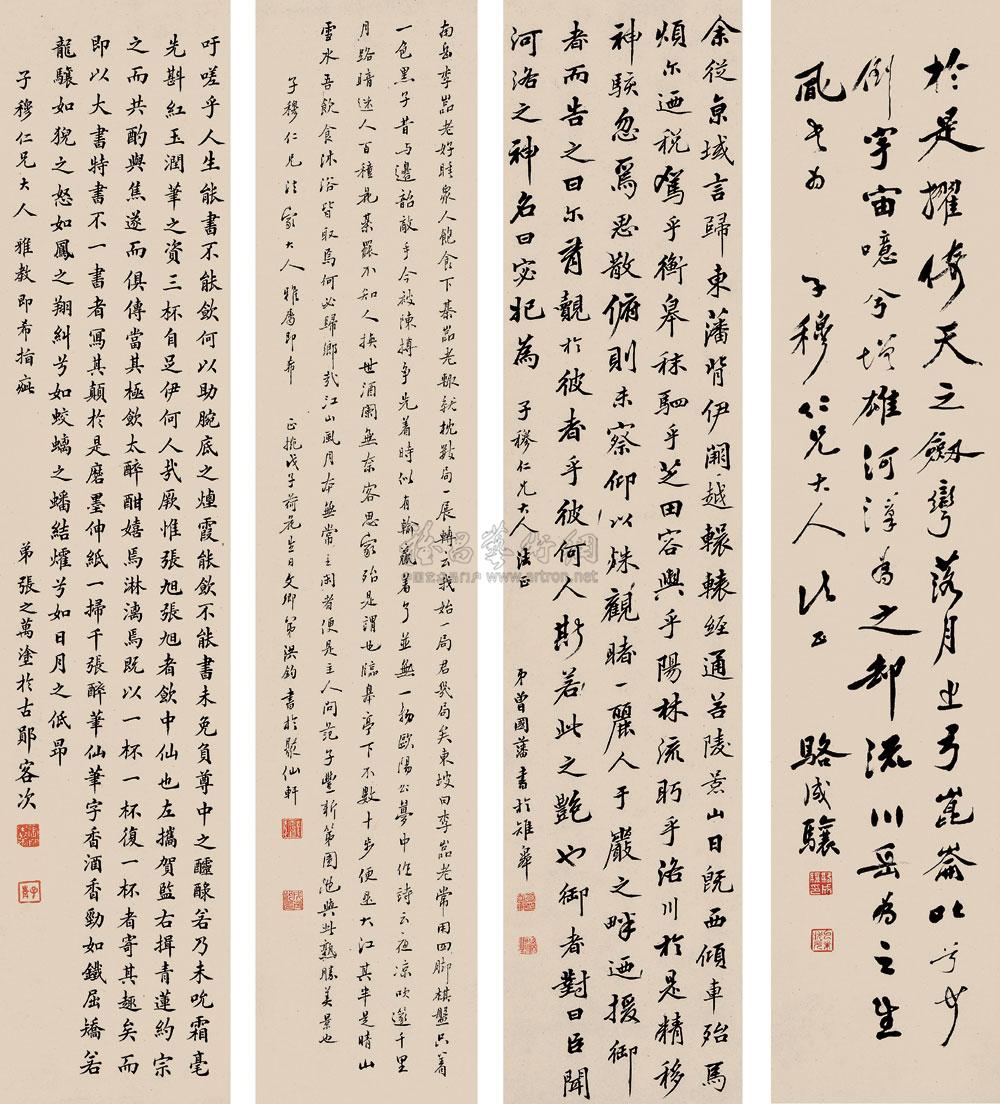 於是擢倚天之劔彎落月之弓崑崙叱兮可
倒宇宙噫兮增雄河漢為之却流川岳為之生
風 書為 子穆仁兄大人 法正 駱成驤
余從京域言歸東藩背伊闕越轘轅經通谷陵景山日既西傾車殆馬
煩尔迺税駕乎衡皋秣駟乎芝田容與乎陽林流眄乎洛川於是精移
神駭忽焉思散俯則未察仰以殊觀睹一麗人于巖之畔迺援御
者而告之曰尔有覿於彼者乎彼何人斯若此之艷也御者對曰臣聞
河洛之神名曰宓妃為 子穆仁兄大人 法正 弟曾國藩書於雉皋
南岳李嵓老好睡衆人飽食下棊嵓老輒就枕數局一展轉云我始一局君幾局矣東坡曰李嵓老常用四脚棋盤只著
一色黑子昔与邊韶敵手今被陳摶争先着時似有輸贏着了並無一物歐陽公夢中作詩云夜凉吹邃千里
月路暗迷人百種花棊罷不知人換世酒闌無奈客思家殆是謂也臨皋亭下不數十步便是大江其半是晴山
雪水吾飲食沐浴皆取焉何必歸鄉哉江山風月本無常主閑者便是主人問范子豐新第園池與此孰勝美景也
子穆仁兄法家大人雅屬即希 正挽戊子荷花生日文卿弟洪鈞書於聚仙軒
吁嗟乎人生能書不能飲何以助腕底之煙霞能飲不能書未免負尊中之醽醁若乃未吮霜毫
先斟紅玉潤筆之資三杯自足伊何人哉厥惟張旭張旭者飲中仙也左攜賀監右揖青蓮約宗
之而共酌與焦遂而俱傳當其極飲太醉酣嬉焉淋漓焉既以一杯一杯復一杯者寄其趣矣而
即以大書特書不一書者寫其顛於是磨墨伸紙一掃千張醉筆仙筆字香酒香勁如鐵屈矯若
龍驤如猊之怒如鳳之翔糾兮如蛟螭之蟠結爥兮如日月之低昂
子穆仁兄大人 雅教即希指疵 弟張之萬塗於古鄖客次
雅昌藝術網
www.artron.net